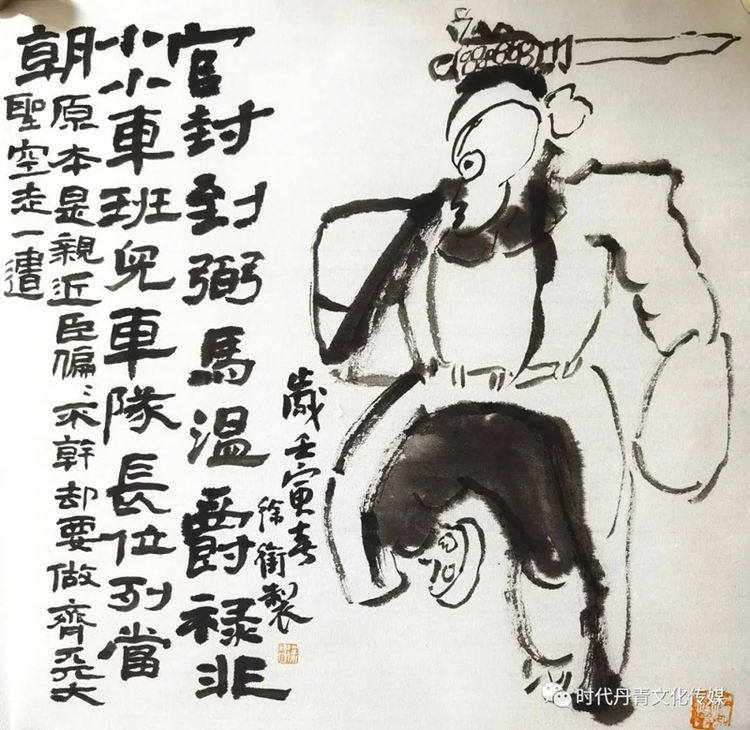 官封到弼馬溫爵禄非
小小車班兒車隊長位列當
朝
原本是親近臣偏〻不幹却要做齊天大
聖空走一遭
歲壬寅春
徐 製
时代丹青文化传媒